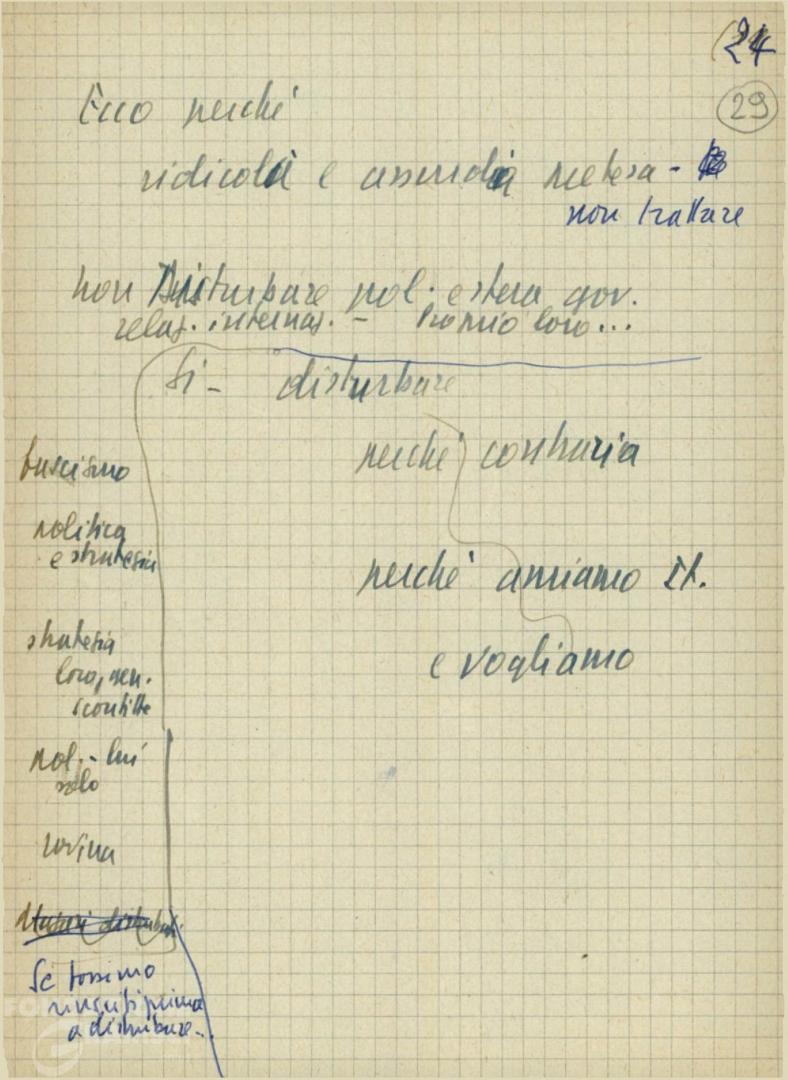 24
29
Ecco perché
ridicola e assurda pretesa -
non trattare
non disturbare pol. estera gov.
relaz. internaz. - Proprio loro...
Si - disturbare
perché contraria
perché amiamo It.
e vogliamo
fascismo
politica
e strategia
strategia
loro, gen.
sconfitte
pol. - lui
solo
rovina
Se fossimo
riusciti prima
a disturbare...